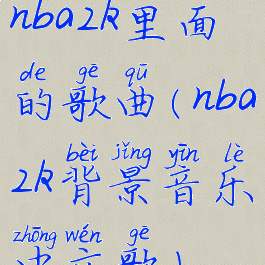 nba2k里面
de gē qū
的歌曲(nba
bèi jǐng yīn lè
2k背景音乐
zhōng wén gē
中文歌)